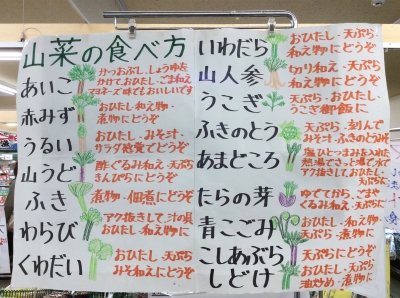 山菜の食べ方
あいこ
かつおぶし、しょうゆを
かけて、おひたし・ごま和え
マヨネーズ味でもおいしいです
赤みず
おひたし・和え物・
煮物にどうぞ
うるい
おひたし・みそ汁・
サラダ感覚でどうぞ
山うど
酢ぐるみ和え・天ぷら
きんぴらにどうぞ
ふき
煮物・佃煮にどうぞ
わらび
アク抜きして、汁の具
おひたし・和え物に
くわだい
おひたし・天ぷら
みそ和えにどうぞ
いわだら
おひたし・天ぷら・
和え物にどうぞ
山人参
切り和え・天ぷら
和え物に
うこぎ
おひたし・天ぷら・
うこぎ御飯に
ふきのとう
天ぷら・刻んで
みそ汁・ふきのとうみそ
あまどころ
塩ひとつまみを入れた
熱湯でさっと湯で水で
アク抜きして、おひたし・
天ぷら
たらの芽
ゆでてから、ごまや
くるみ和え・天ぷら
青こごみ
おひたし・和え物・
天ぷら・煮物に
こしあぶら
天ぷらにどうぞ
しどけ
おひたし・天ぷら
油炒め・煮物に